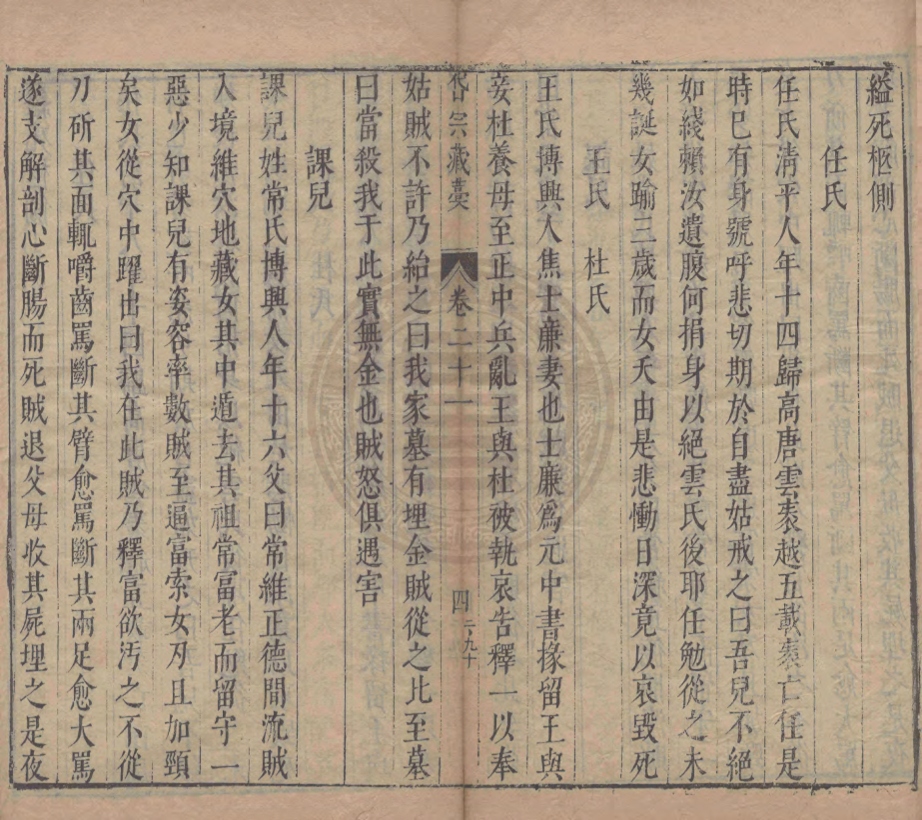 縊死柩側
任氏
任氏清平人年十四歸高唐雲袤越五載袤亡任是
時巳有身號呼悲切期於自盡姑戒之曰吾兒不絕
如綫賴汝遺腹何捐身以絕雲氏後耶任勉從之未
幾誕女踰三歲而女夭由是悲慟日深竟以哀毀死
王氏　杜氏
王氏博興人焦士廉妻也士廉爲元中書掾留王與
妾杜養母至正中兵亂王與杜被執哀告釋一以奉
岱宗藏稾　卷二十一　四　六九十
姑賊不許乃紿之曰我家墓有埋金賊從之比至墓
曰當殺我于此實無金也賊怒俱遇害
課兒
課兒姓常氏博興人年十六父曰常維正德間流賊
入境維穴地藏女其中遁去其祖常冨老而留守一
惡少知課兒有姿容率數賊至逼富索女刃且加頸
矣女從穴中躍出曰我在此賊乃釋富欲汚之不從
刀斫其面輒嚼齒罵斷其臂愈罵斷其兩足愈大罵
遂支解剖心斷腸而死賊退父母收其屍埋之是夜